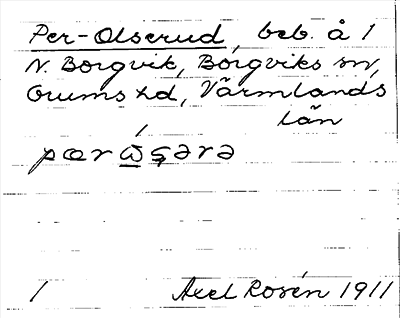 Per-Olserud, beb. å 1
N. Borgvik, Borgviks sn,
Grums hd, Värmlands
län
pærώ̲ʂərə
1 Axel Rosén 1911